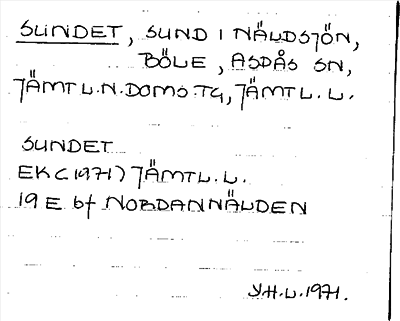 SUNDET, SUND I NÄLDSJÖN,
BÖLE, ASPÅS SN,
JÄMTL.N.DOMS.TG, JÄMTL.L.
SUNDET
EK (1971) JÄMTL.L.
19 E bf NORDANNÄLDEN
Y.H.L.1971.